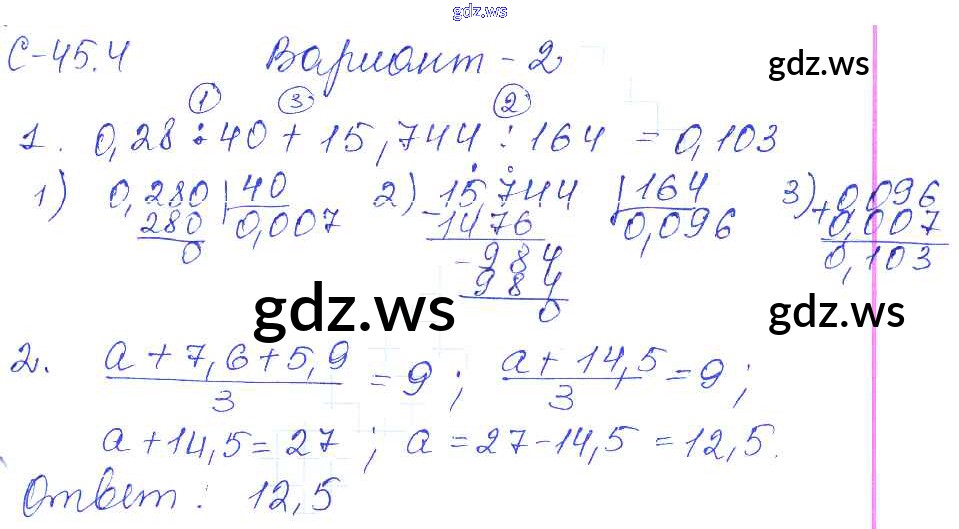 gdz.ws
С-45.4 Вариант - 2 gdz.ws
1 3 2
1. 0,28 : 40 + 15,744 : 164 = 0,103
1) 0,280 | 40 2) 15,744 | 164 3) 0,096
280 0,007 - 1476 0,096 + 0,007
0 - 984 0,103
984
0
gdz.ws gdz.ws
2. (a + 7,6 + 5,9)/3 = 9 ; (a + 14,5)/3 = 9 ;
a + 14,5 = 27 ; a = 27 - 14,5 = 12,5.
Ответ : 12,5